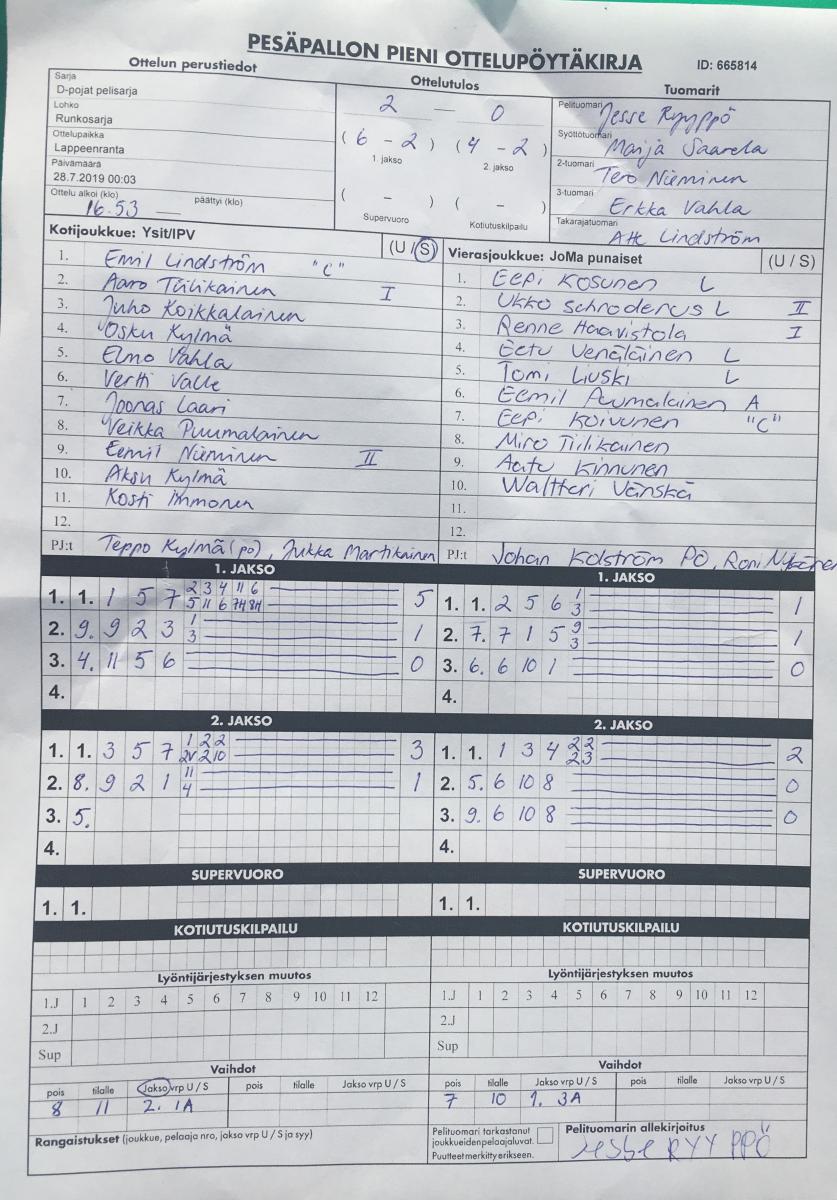 PESÄPALLON PIENI OTTELUPÖYTÄKIRJA
ID: 665814
Ottelun perustiedot
Sarja
D-pojat pelisarja
Lohko
Runkosarja
Ottelupaikka
Lappeenranta
Päivämäärä
28.7.2019 00:03
Ottelu alkoi (klo) päättyi (klo)
16.53 —
Ottelutulos
2 — 0
( 6 - 2 ) ( 4 - 2 )
1. jakso 2. jakso
( - ) ( - )
Supervuoro Kotiutuskilpailu
Tuomarit
Pelituomari Jesse Ryyppö
Syöttötuomari Maija Saarela
2-tuomari Tero Nieminen
3-tuomari Erkka Vahla
Takarajatuomari Atte Lindström
Kotijoukkue: Ysit/IPV (U / S)
1. Emil Lindström "C"
2. Aaro Tiilikainen I
3. Juho Koikkalainen
4. Osku Kylmä
5. Elmo Vahla
6. Vertti Valle
7. Joonas Laari
8. Veikka Puumalainen
9. Eemil Nieminen II
10. Aksu Kylmä
11. Kosti Immonen
12.
PJ:t Teppo Kylmä (po), Jukka Martikainen
Vierasjoukkue: JoMa punaiset (U / S)
1. Eepi Kosunen L
2. Ukko Schroderus L II
3. Renne Haavistola I
4. Eetu Venäläinen L
5. Tomi Liuski L
6. Eemil Puumalainen A
7. Eepi Koivunen "C"
8. Miro Tiilikainen
9. Aatu Kinnunen
10. Waltteri Vänskä
11.
12.
PJ:t Johan Kolström PO, Roni
1. JAKSO
1. 1. 1 5 7 2 3 4 11 6 5
5 11 6 7H 8H
2. 9. 9 2 3 1 1
3
3. 4. 11 5 6 0
4.
1. JAKSO
1. 1. 2 5 6 1 1
3
2. 7. 7 1 5 9 1
3
3. 6. 6 10 1 0
4.
2. JAKSO
1. 1. 3 5 7 1 2 2 3
2V 2 10
2. 8. 9 2 1 11 1
4
3. 5.
4.
2. JAKSO
1. 1. 1 3 4 2 2 2
2 3
2. 5. 6 10 8 0
3. 9. 6 10 8 0
4.
SUPERVUORO
1. 1.
SUPERVUORO
1. 1.
KOTIUTUSKILPAILU
KOTIUTUSKILPAILU
Lyöntijärjestyksen muutos
1.J 1 2 3 4 5 6 7 8 9 10 11 12
2.J
Sup
Lyöntijärjestyksen muutos
1.J 1 2 3 4 5 6 7 8 9 10 11 12
2.J
Sup
Vaihdot
pois tilalle Jakso vrp U / S pois tilalle Jakso vrp U / S
8 11 2. 1A
Vaihdot
pois tilalle Jakso vrp U / S pois tilalle Jakso vrp U / S
7 10 1. 3A
Rangaistukset (joukkue, pelaaja nro, jakso vrp U / S ja syy)
Pelituomari tarkastanut
joukkueidenpelaajaluvat.
Puutteet merkitty erikseen.
Pelituomarin allekirjoitus
Jesse RYYPPÖ